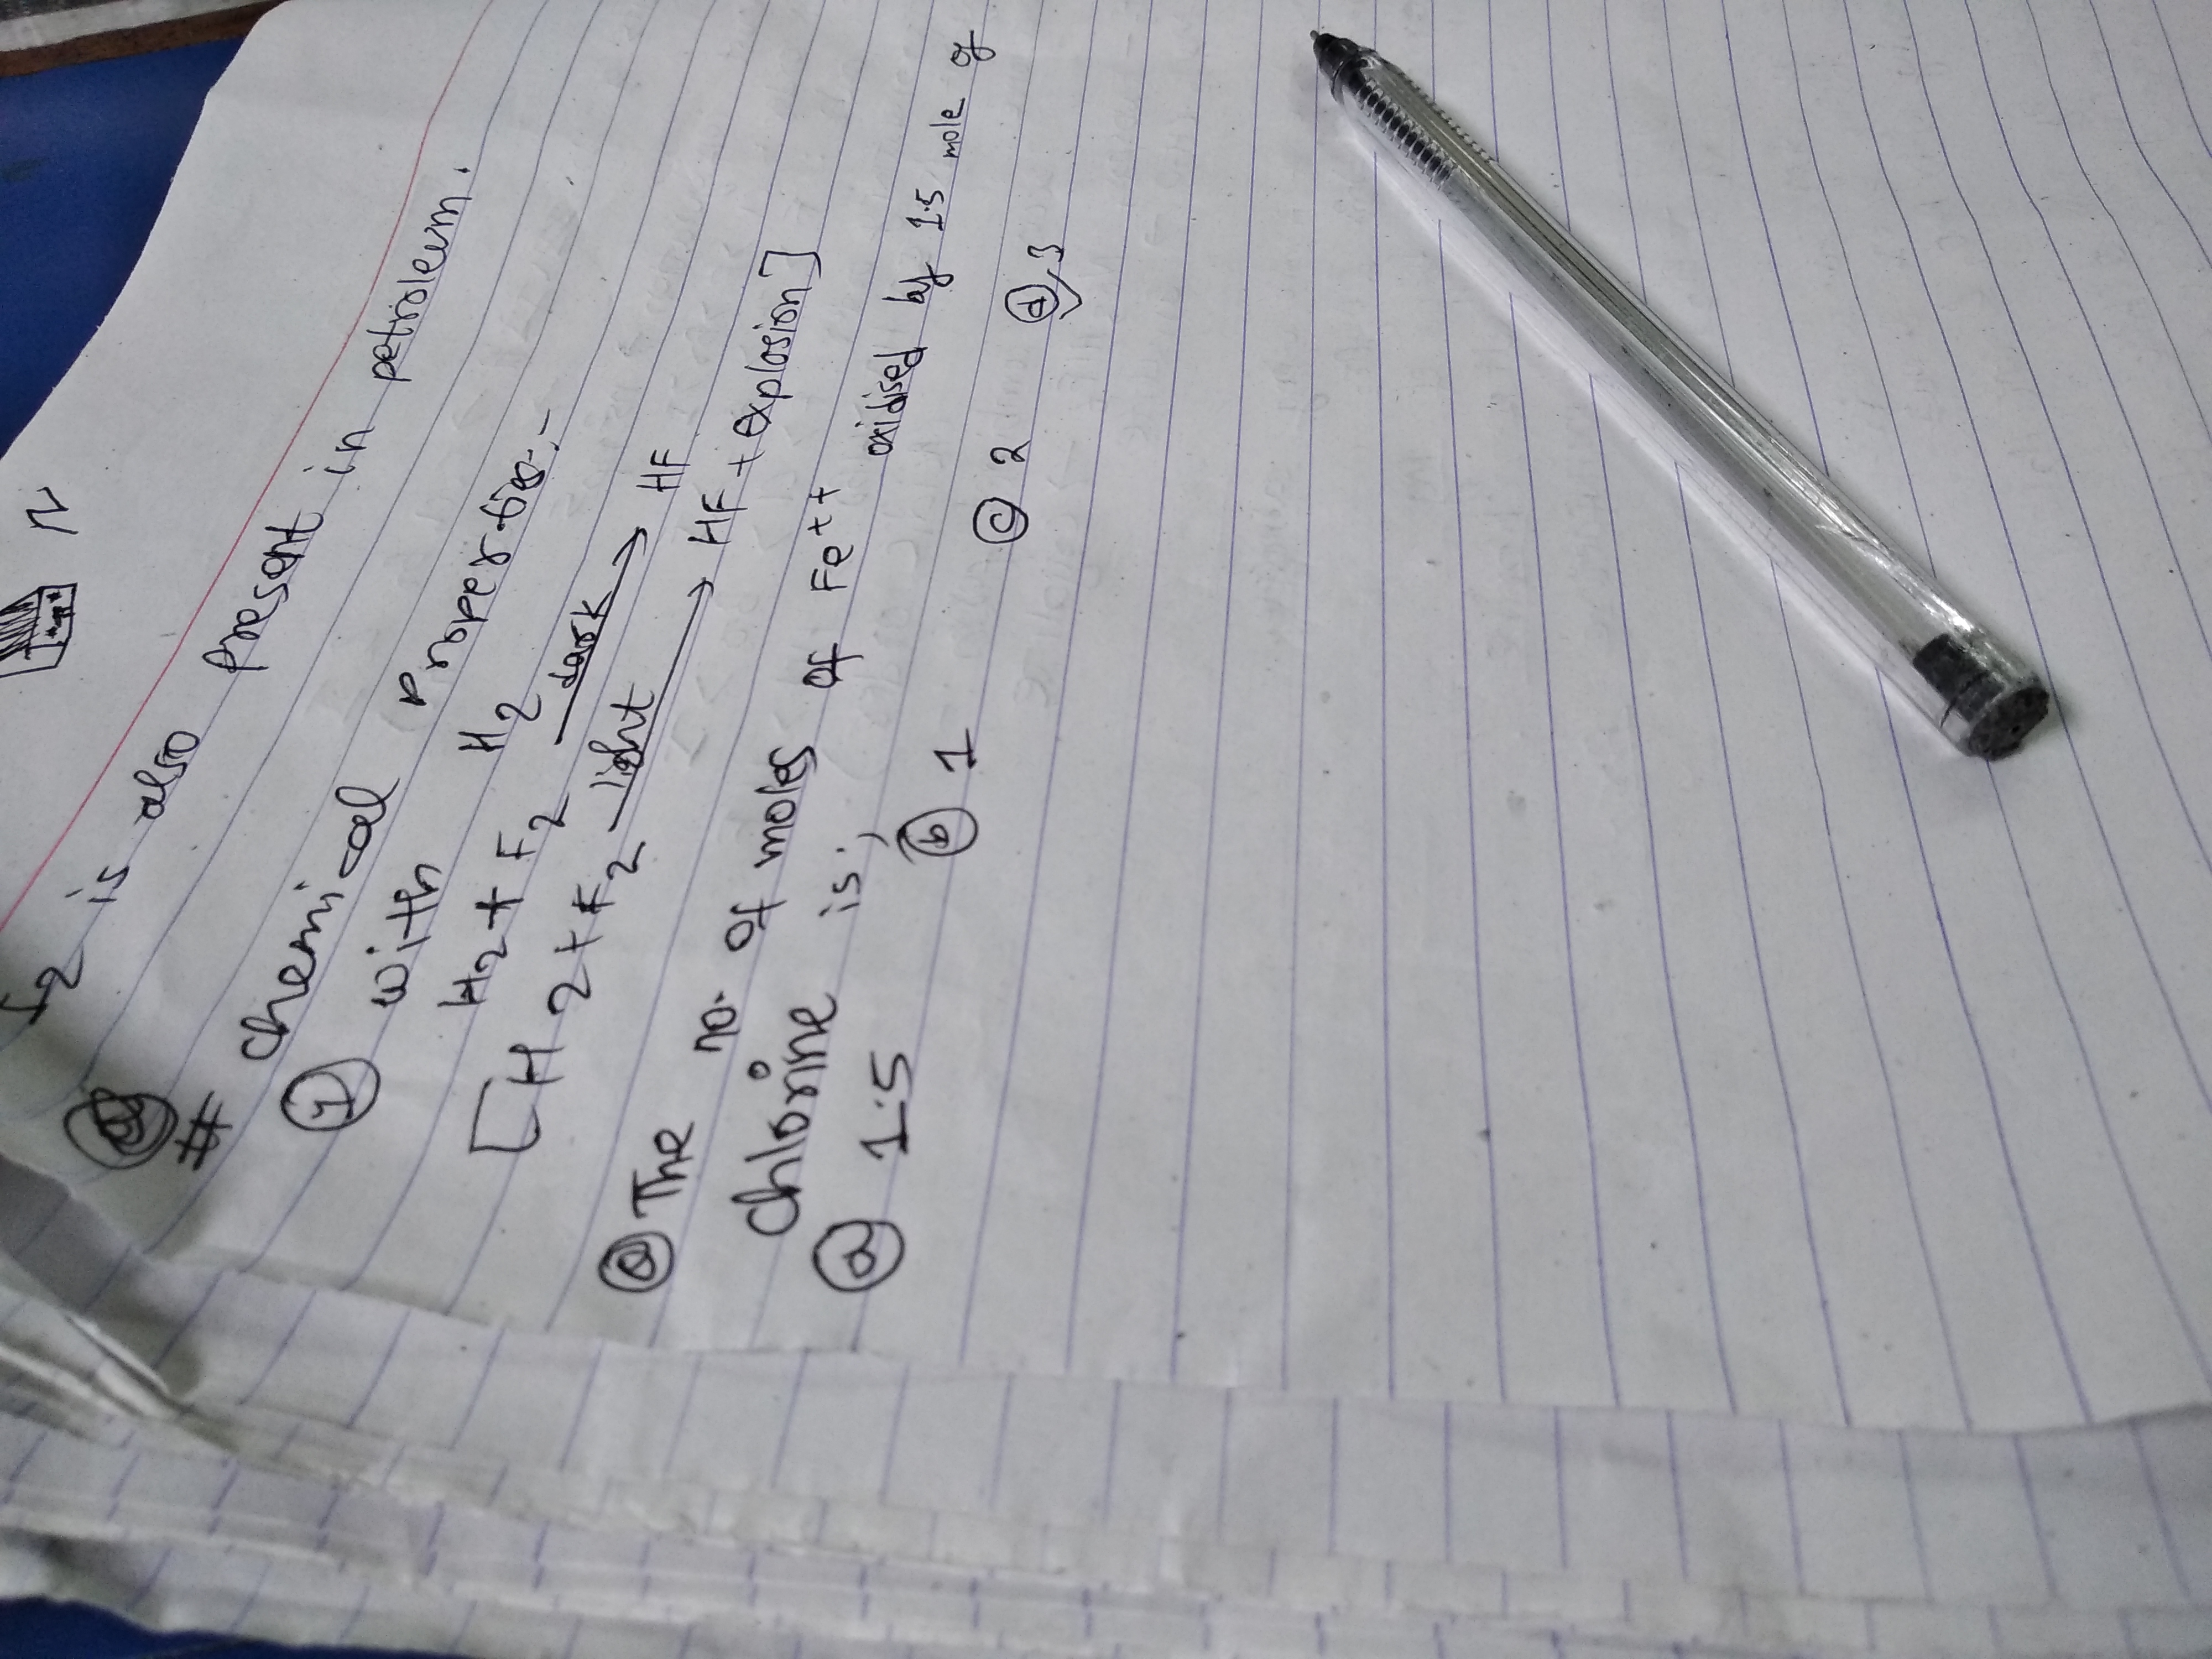 N
I2 is also present in petroleum.
# chemical Properties:-
1 with H2
H2 + F2 dark → HF
[H2 + F2 light → HF + explosion]
Q The no. of moles of Fe++ oxidised by 1.5 mole of
chlorine is;
a 1.5 b 1 c 2 d 3